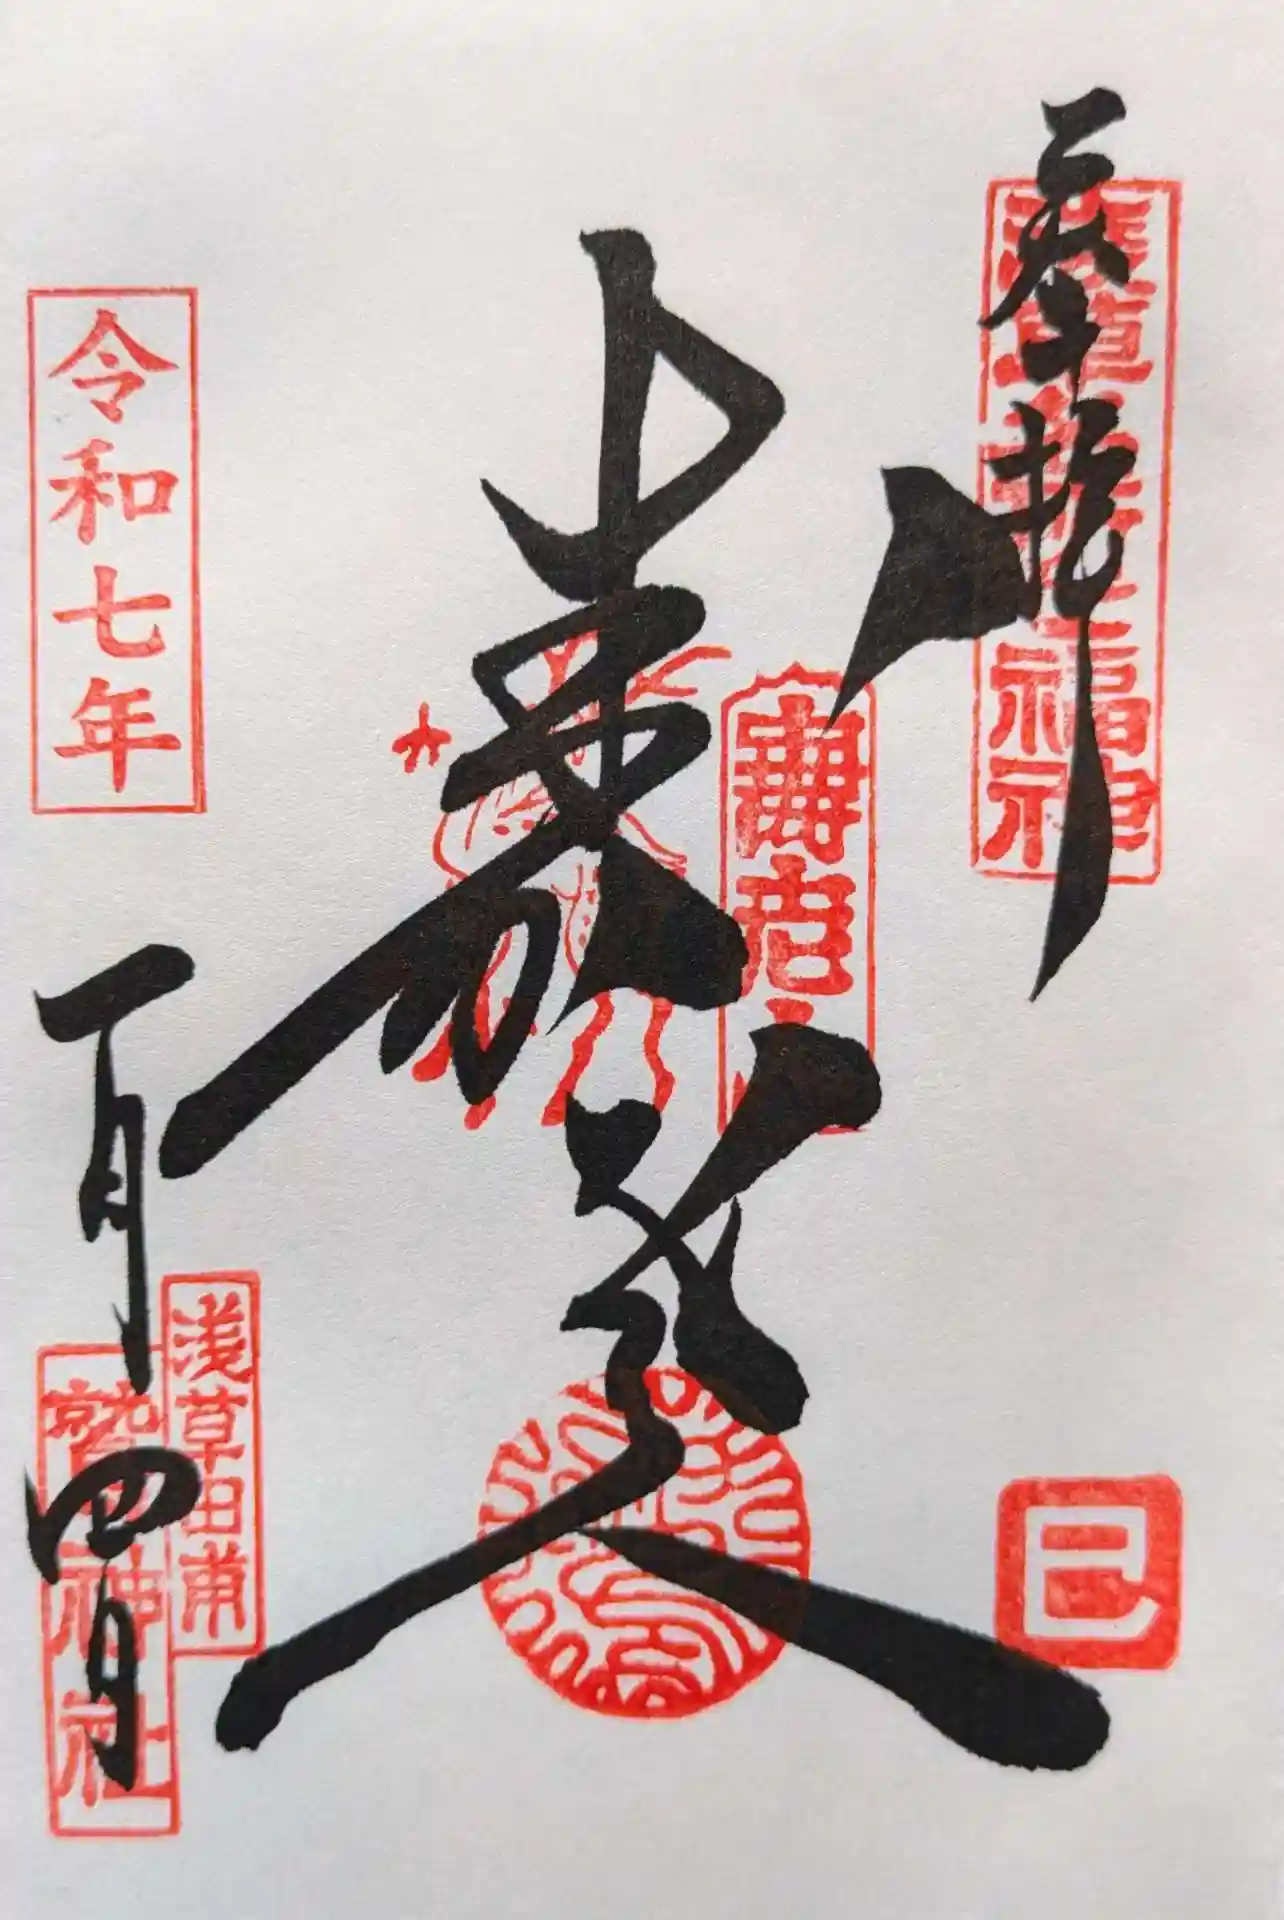 奉拝
浅草名所七福神
巳
壽老人
壽老人
令和七年
一月四日
浅草田甫
鷲神社